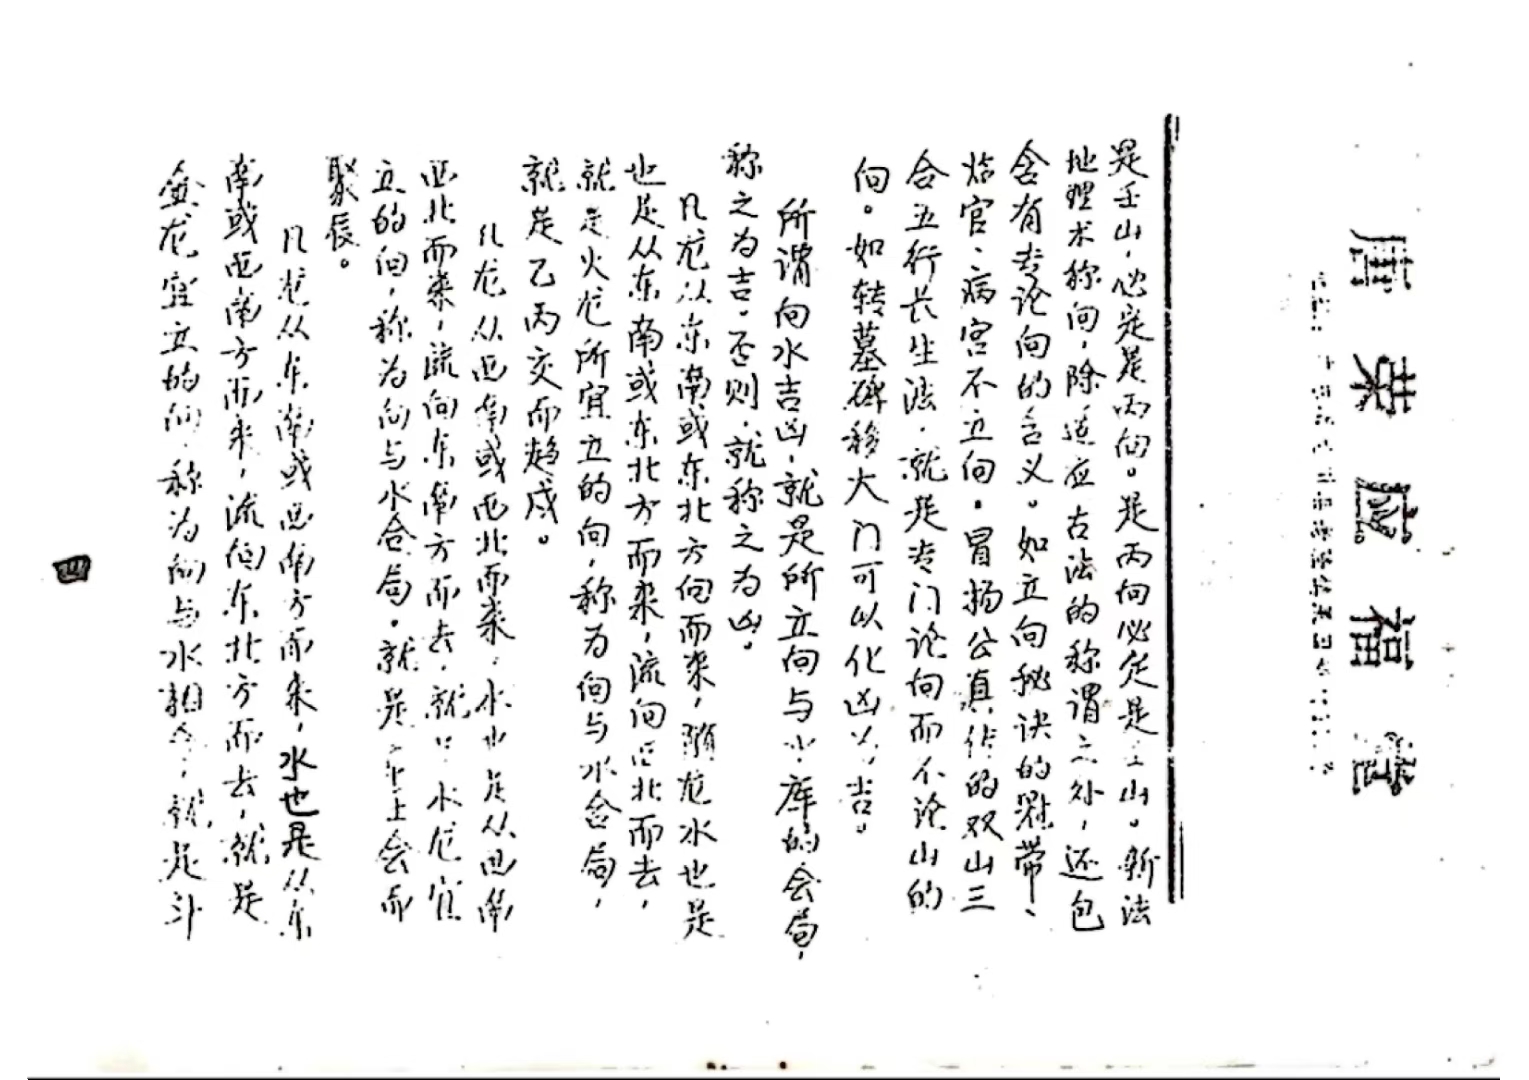 唐荣应福堂
是壬山，必定是丙向。是丙向必定是壬山。新法
地理术称向，除适应古法的称谓之外，还包
含有专论向的含义。如立向秘诀的冠带、
临官、病宫不立向。冒扬公真传的双山三
合五行长生法，就是专门论向而不论山的
向。如转墓碑移大门可以化凶为吉。
所谓向水吉凶，就是所立向与水库的会局，
称之为吉。否则，就称之为凶。
凡龙从东南或东北方向而来，随龙水也是
也是从东南或东北方而来，流向西北而去，
就是火龙所宜立的向，称为向与水合局，
就是乙丙交而趋戌。
凡龙从西南或西北而来，水也是从西南
西北而来，流向东南方而去，就是水龙宜
立的向，称为向与水合局。就是辛壬会而
聚辰。
凡龙从东南或西南方而来，水也是从东
南或西南方而来，流向东北方而去，就是
金龙宜立的向，称为向与水相合，就是斗
四